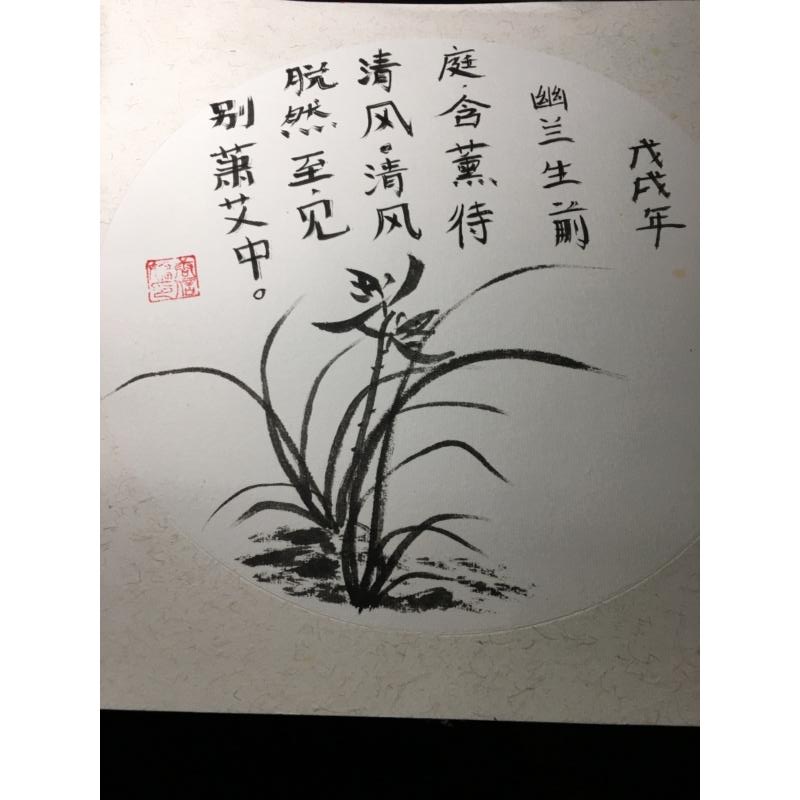 戊戌年
幽兰生前
庭，含薰待
清风。清风
脱然至，见
别萧艾中。